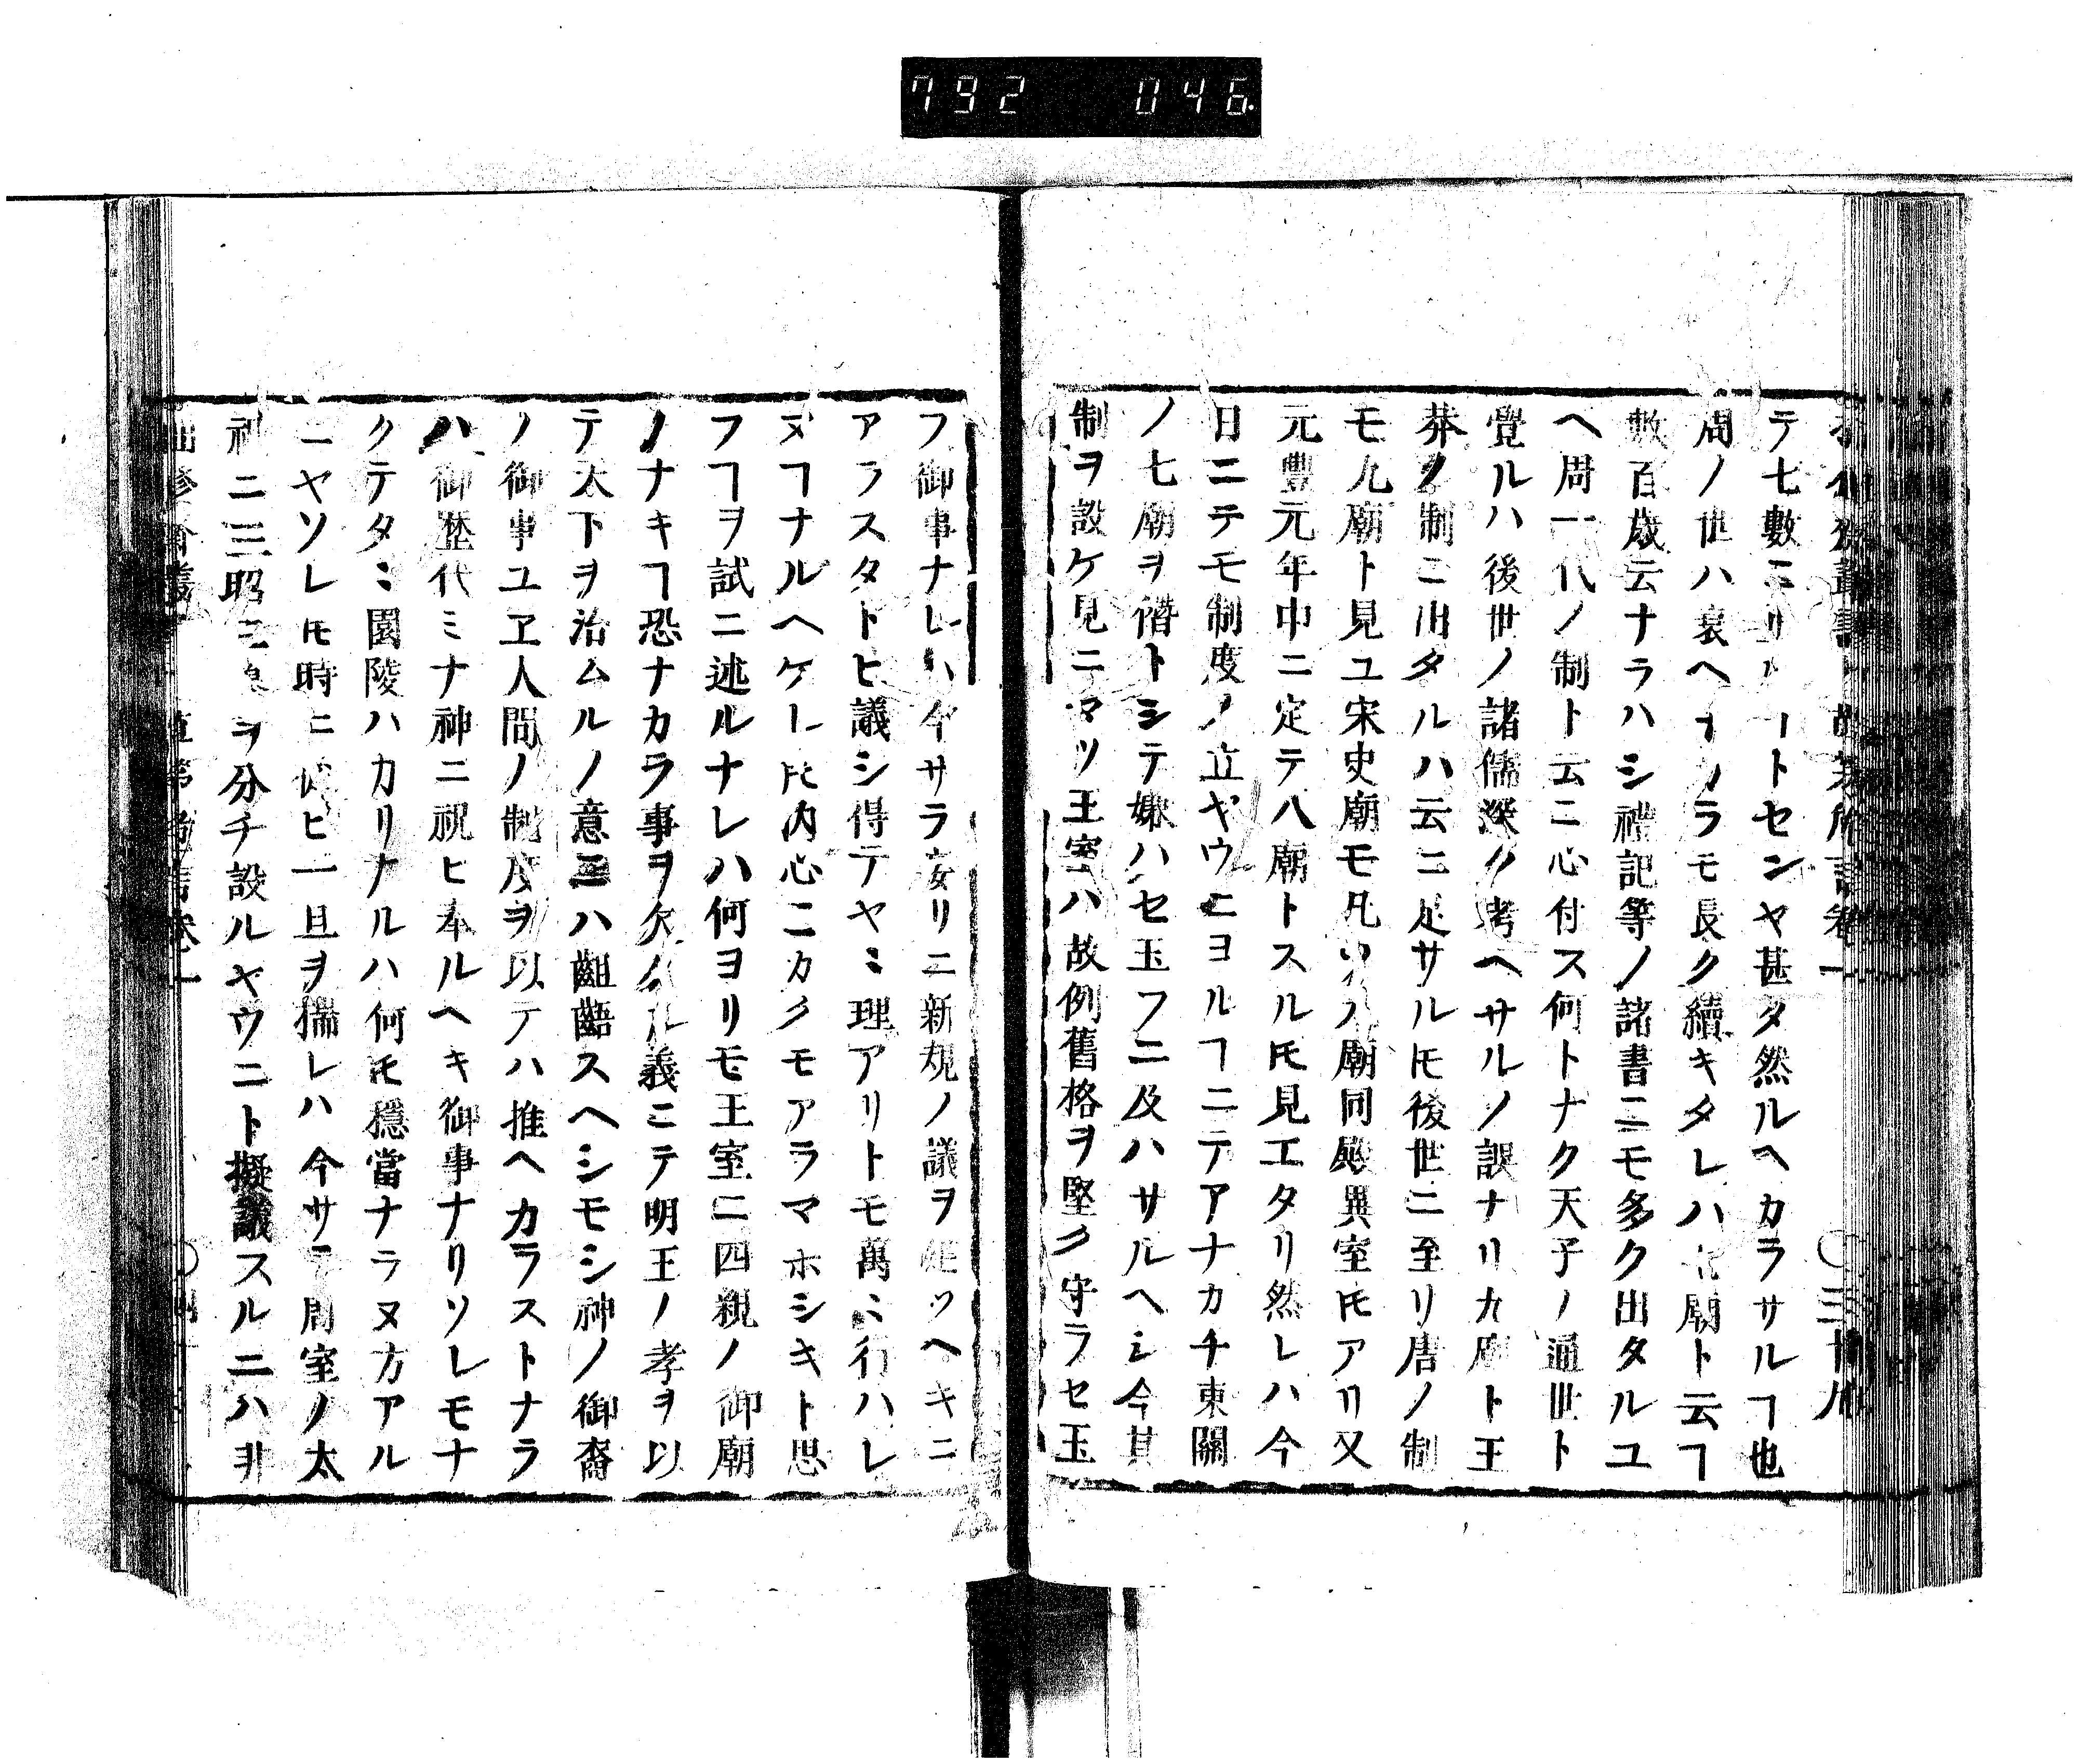 792 046
テ七數ニ トセンヤ甚タ然ルヘカラサルヿ也
周ノ世ハ衰ヘ ラモ長ク續キタレハ 廟ト云ヿ
數百歳云ナラハシ禮記等ノ諸書ニモ多ク出タルユ
ヘ周一代ノ制ト云ニ心付ス何トナク天子ノ通世ト
覺ルハ後世ノ諸儒深ク考ヘサルノ誤ナリ九廟ト王
莽ノ制ニ出タルハ云ニ足サルㇳモ後世ニ至リ唐ノ制
モ九廟ト見ユ宋史廟モ凡 八廟同殿異室ㇳモアリ又
元豐元年中ニ定テ八廟トスルㇳモ見エタリ然レハ今
日ニテモ制度ノ立ヤウニヨルヿニテアナカチ東關
ノ七廟ヲ僭トシテ嫌ハセ玉フニ及ハサルヘシ今其
制ヲ設ケ見ニマツ王室ハ故例舊格ヲ堅ク守ラセ玉
フ御事ナレハ今サラ妄リニ新規ノ議ヲ ツヘキニ
アラスタトヒ議シ得テヤミ理アリトモ萬ミ行ハレ
ヌヿナルヘケレㇳモ内心ニカクモアラマホシキト思
フヿヲ試ニ述ルナレハ何ヨリモ王室ニ四親ノ御廟
ノナキヿ恐ナカラ事ヲ欠 ル義ニテ明王ノ孝ヲ以
テ天下ヲ治ムルノ意ニハ齟齬スヘシモシ神ノ御裔
ノ御事ユヱ人間ノ制度ヲ以テハ推ヘカラストナラ
ハ御歴代ミナ神ニ祝ヒ奉ルヘキ御事ナリソレモナ
クテタミ園陵ハカリナルハ何ㇳモ穩當ナラヌ方アル
ニヤソレㇳモ時ニ ヒ一旦ヲ揣レハ今サラ周室ノ太
祖ニ三昭三穆ヲ分チ設ルヤウニト擬議スルニハ非